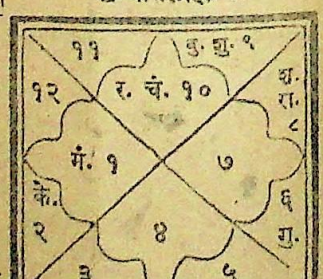 ११
बु. शु. ९
१२
र. चं. १०
श.
रा.
८
मं. १
७
के.
२
४
६
गु.
३
५